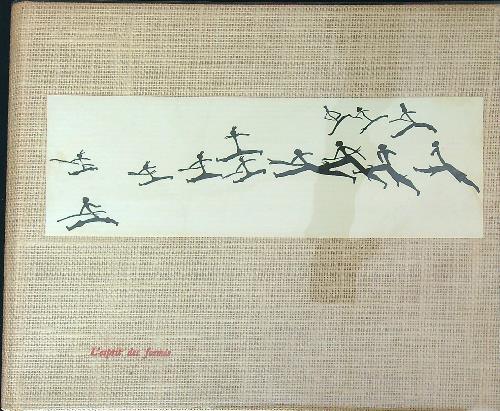 L'esprit des formes